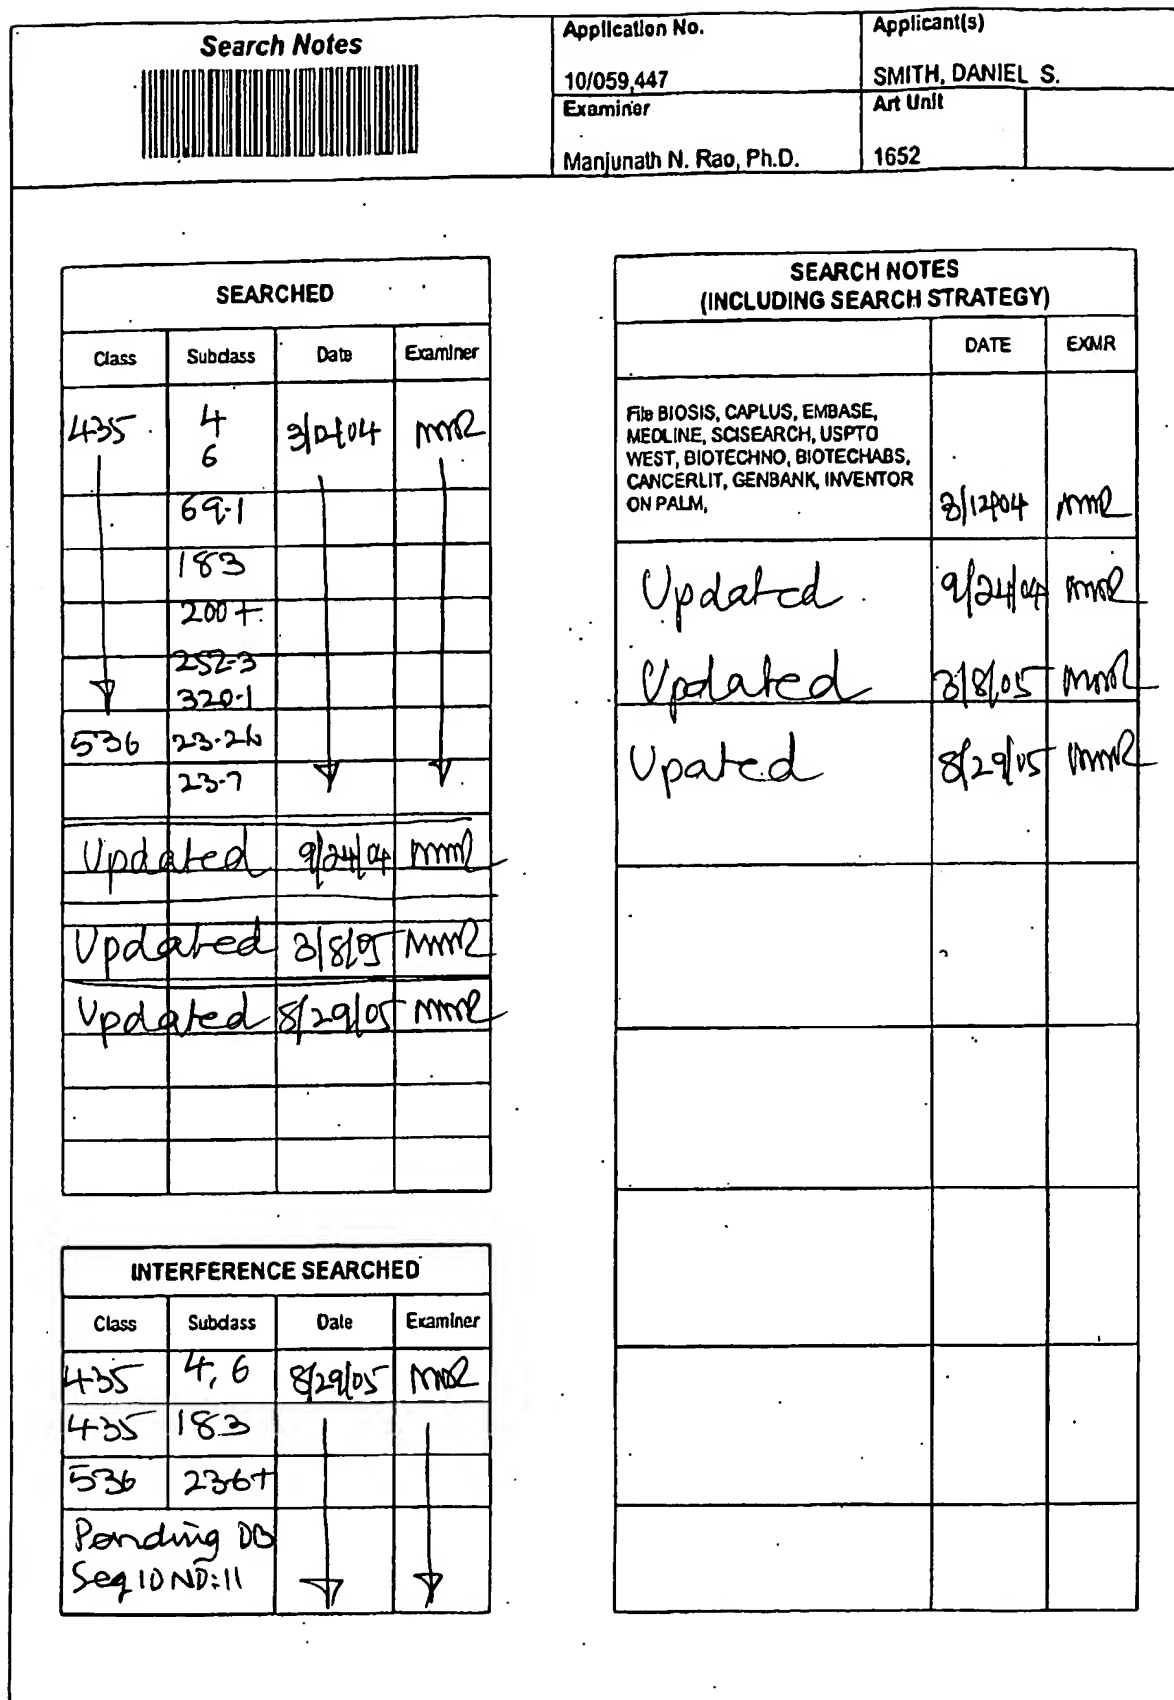 Search Notes
Application No.
Applicant(s)
10/059,447
SMITH, DANIEL S.
Examiner
Art Unit
Manjunath N. Rao, Ph.D.
1652
SEARCHED
Class Subclass Date Examiner
435 4 3/12/04 MMR
6
69.1
183
200+
252.3
320.1
536 23.2
23.7
Updated 9/24/04 MMR
Updated 3/8/05 MMR
Updated 8/29/05 MMR
INTERFERENCE SEARCHED
Class Subclass Date Examiner
435 4, 6 8/29/05 MMR
435 183
536 23.6+
Pending DB
Seq ID NO:11
SEARCH NOTES
(INCLUDING SEARCH STRATEGY)
DATE EXMR
File BIOSIS, CAPLUS, EMBASE,
MEDLINE, SCISEARCH, USPTO
WEST, BIOTECHNO, BIOTECHABS,
CANCERLIT, GENBANK, INVENTOR
ON PALM,
3/12/04 MMR
Updated 9/24/04 MMR
Updated 3/8/05 MMR
Upated 8/29/05 MMR